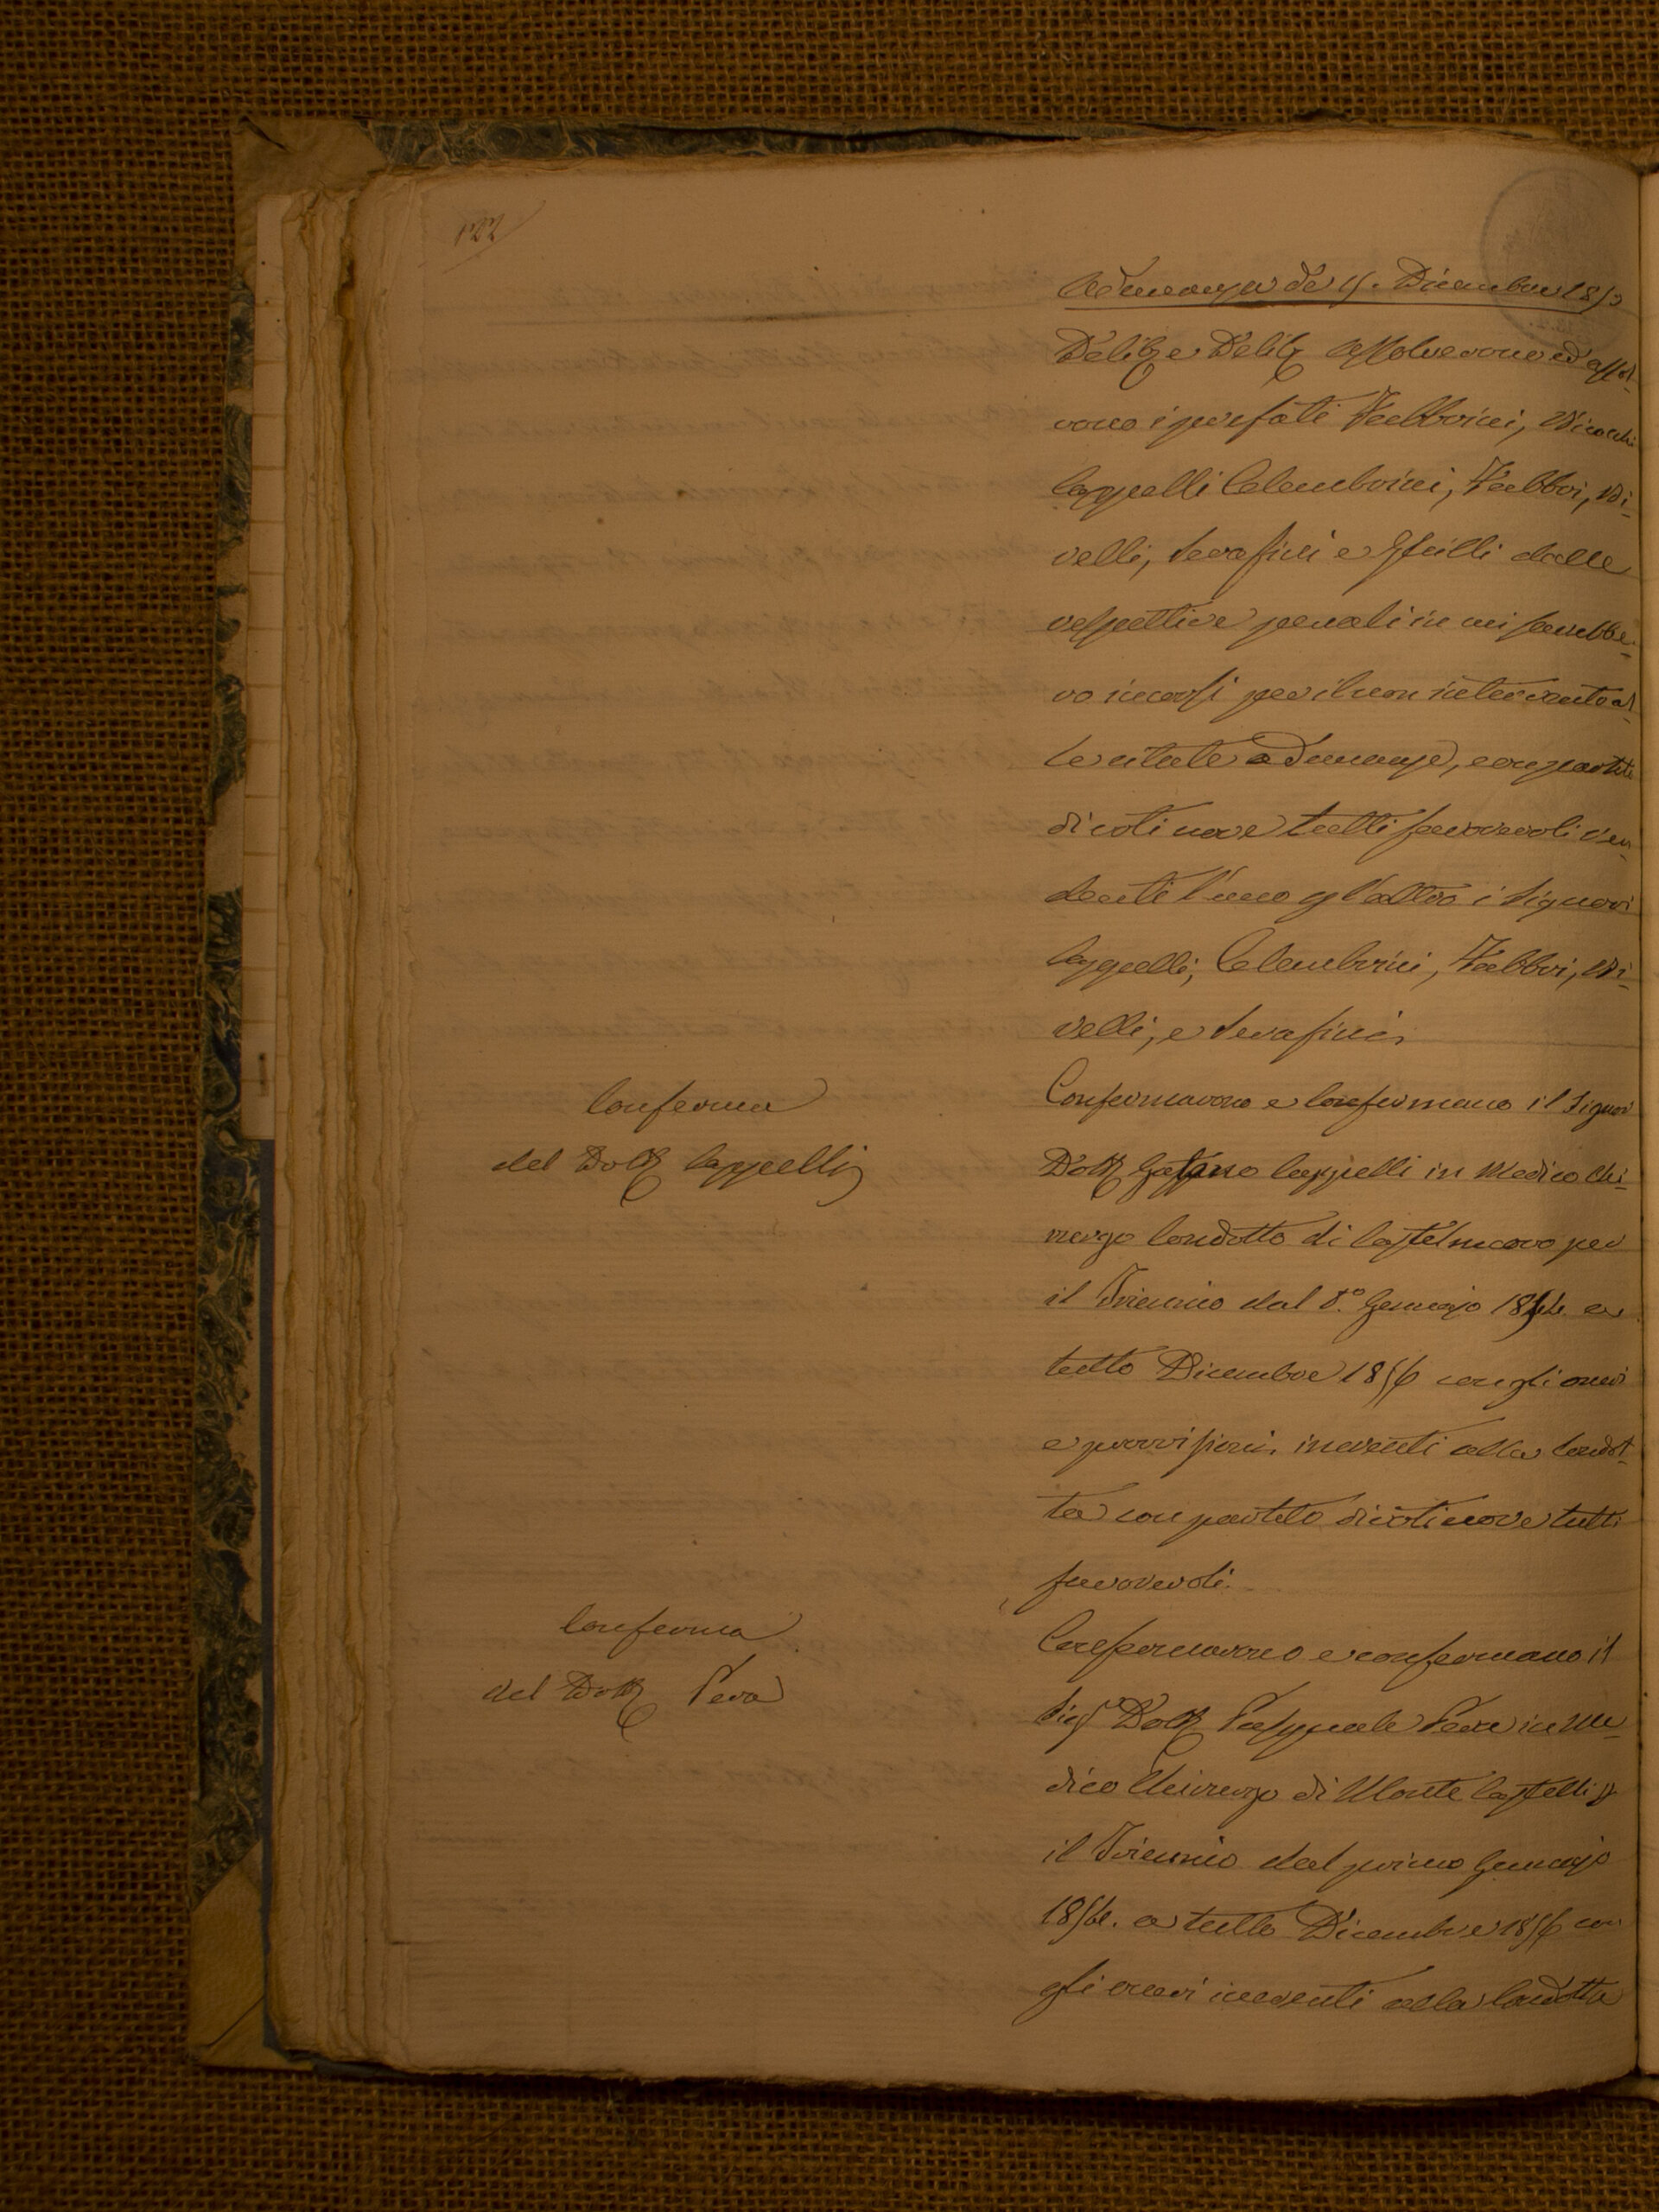 122
Adunanza de 9. Dicembre 1853
Delibe Delib assolverono ed assol-
vono i prefati Fabbrini, Nicochi
Cappelli Calambrini, Fabbri, Bi-
velli, Serafini e Grilli dalle
respettive penali in cui sarebbe-
ro incorsi per il non intervento al-
le citate adunanze, con partito
di voti nove tutti favorevoli ren-
denti l'uno p l'altro i Signori
Cappelli, Calambrini, Fabbri, Bi-
velli, e Serafini
Conferma
del Dott Cappelli
Confermarono e confermano il Signor
Dott Gaetano Cappelli in Medico Chi-
rurgo Condotto di Castelnuovo per
il Triennio dal 1.° Gennajo 1854. a
tutto Dicembre 1856 con gli oneri
e provvisioni inerenti alla Condot-
ta con partito di voti nove tutti
favorevoli.
Conferma
del Dott Pera
Confermarono e confermano il
Sigr Dott Pasquale Pera in Me-
dico Chirurgo di Monte Castelli p
il Triennio dal primo Gennajo
1854. a tutto Dicembre 1856 con
gli oneri inerenti alla Condotta